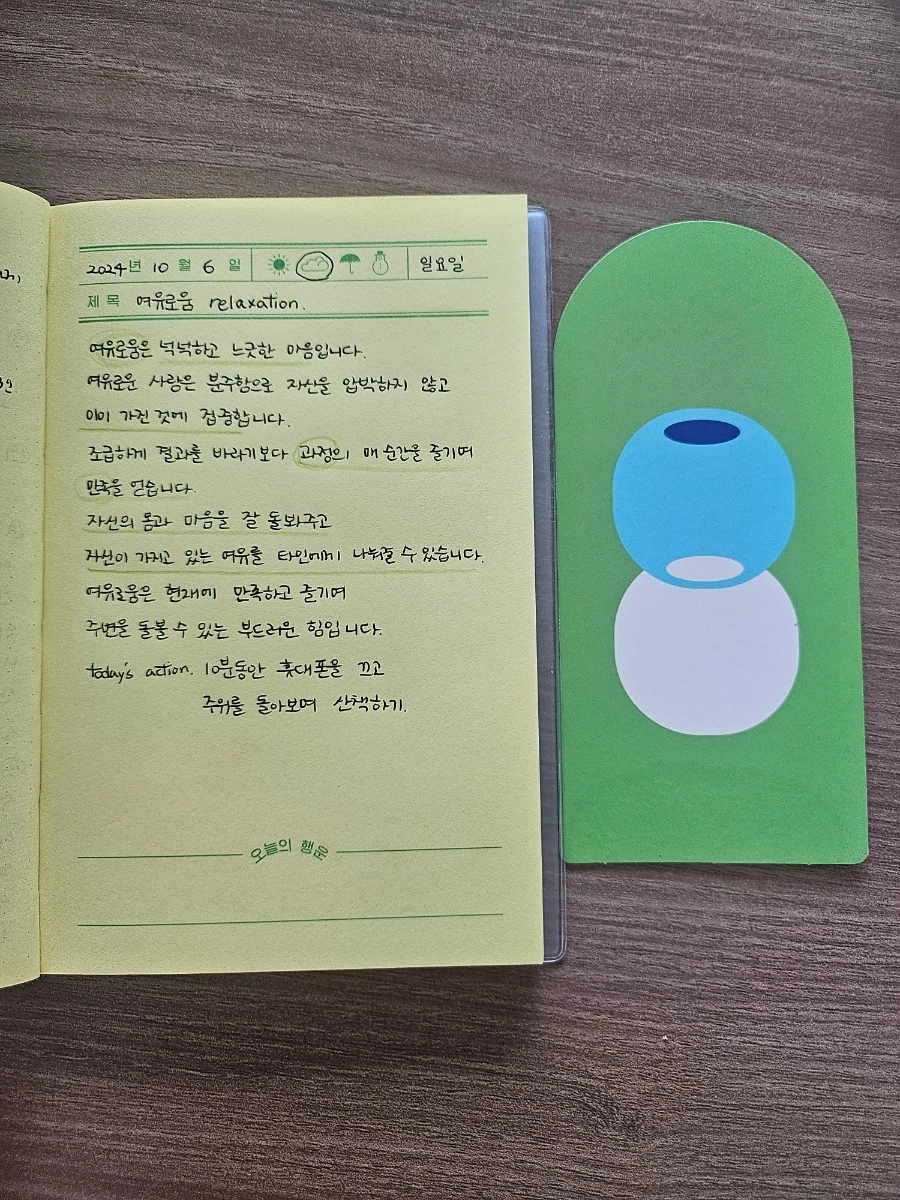 2024년 10월 6일 일요일
제목 여유로움 relaxation.
여유로움은 넉넉하고 느긋한 마음입니다.
여유로운 사람은 분주함으로 자신을 압박하지 않고
이미 가진 것에 집중합니다.
조급하게 결과를 바라기보다 과정의 매 순간을 즐기며
만족을 얻습니다.
자신의 몸과 마음을 잘 돌봐주고
자신이 가지고 있는 여유를 타인에게 나눠줄 수 있습니다.
여유로움은 현재에 만족하고 즐기며
주변을 돌볼 수 있는 부드러운 힘입니다.
today's action. 10분동안 휴대폰을 끄고
주위를 돌아보며 산책하기.
오늘의 행운